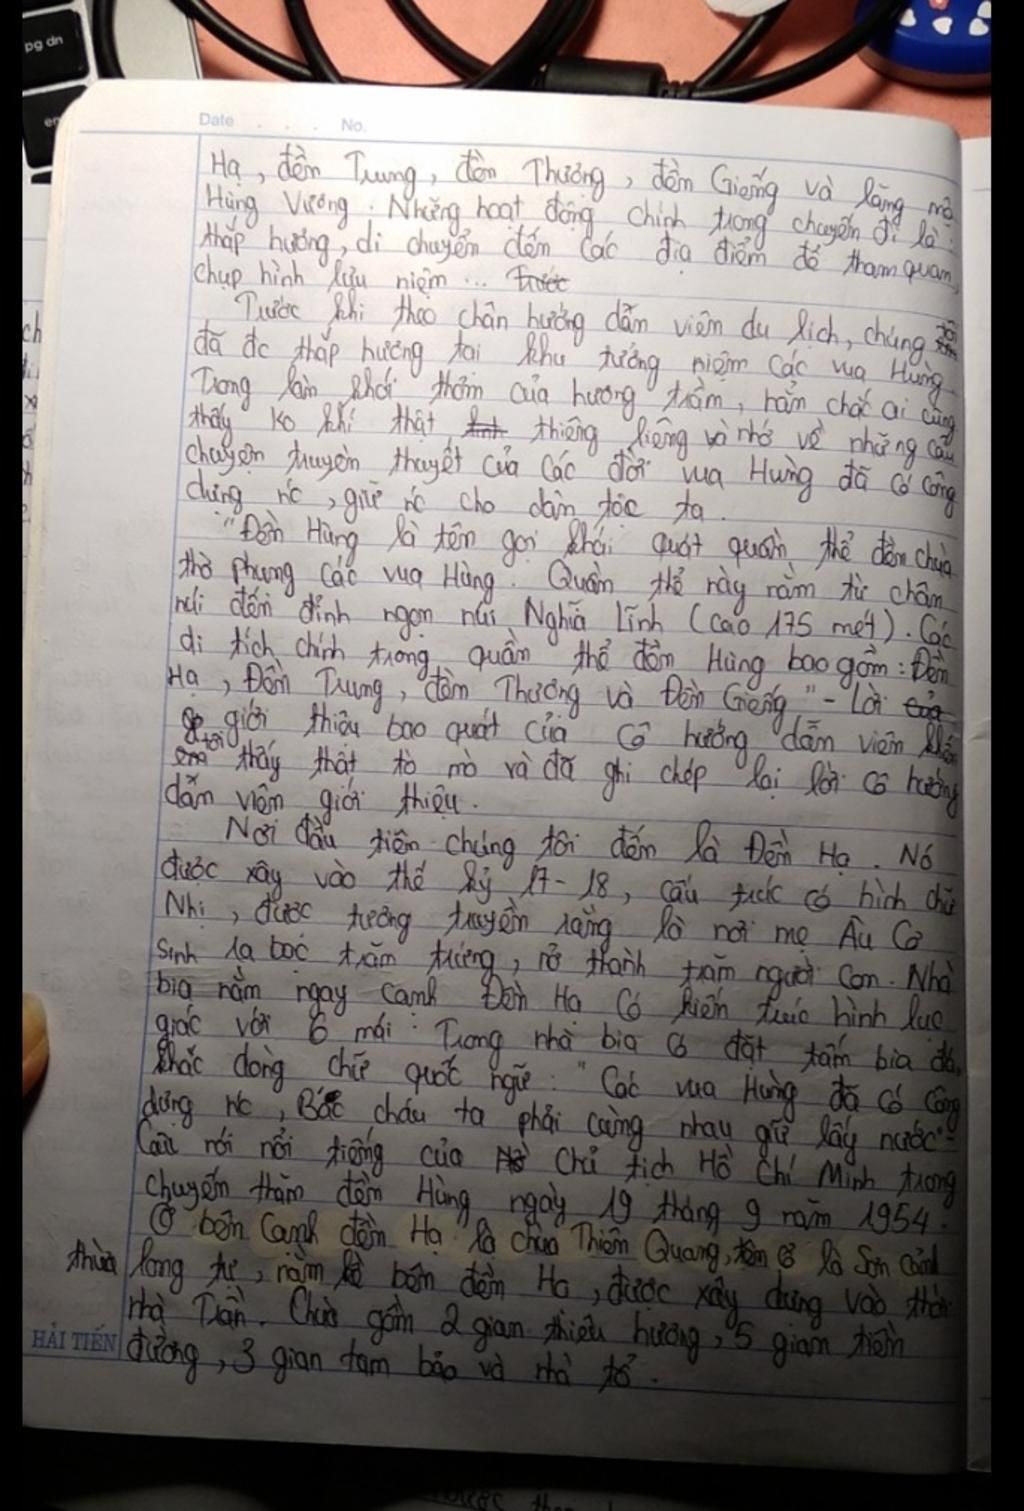 pg dn
Date . . . No.
Hạ, đền Trung, đền Thượng, đền Giếng và lăng mộ
Hùng Vương. Những hoạt động chính trong chuyến đi là:
thắp hương, di chuyển đến các địa điểm để tham quan,
chụp hình lưu niệm... Trước
Trước khi theo chân hướng dẫn viên du lịch, chúng tôi
đã đc thắp hương tại khu tưởng niệm các vua Hùng.
Trong làn khói thơm của hương trầm, hẳn chắc ai cũng
thấy ko khí thật linh thiêng liêng và nhớ về những câu
chuyện truyền thuyết của các đời vua Hùng đã có công
dựng nc, giữ nc cho dân tộc ta.
"Đền Hùng là tên gọi khái quát quần thể đền chùa
thờ phụng các vua Hùng. Quần thể này nằm từ chân
núi đến đỉnh ngọn núi Nghĩa Lĩnh (cao 175 mét). Các
di tích chính trong quần thể đền Hùng bao gồm: Đền
Hạ, Đền Trung, đền Thượng và Đền Giếng" - Lời của
giới thiệu bao quát của cô hướng dẫn viên khiến
em tôi thấy thật tò mò và đã ghi chép lại lời cô hướng
dẫn viên giới thiệu.
Nơi đầu tiên chúng tôi đến là Đền Hạ. Nó
được xây vào thế kỷ 17-18, cấu trúc có hình chữ
Nhị, được tương truyền rằng là nơi mẹ Âu Cơ
sinh ra bọc trăm trứng, nở thành trăm người con. Nhà
bia nằm ngay cạnh Đền Hạ có kiến trúc hình lục
giác với 6 mái. Trong nhà bia có đặt tấm bia đá,
khắc dòng chữ quốc ngữ: "Các vua Hùng đã có công
dựng nc, Bác cháu ta phải cùng nhau giữ lấy nước"-
Câu nói nổi tiếng của Chủ tịch Hồ Chí Minh trong
chuyến thăm đền Hùng ngày 19 tháng 9 năm 1954.
Ở bên cạnh đền Hạ là chùa Thiên Quang, tên cổ là Sơn cảnh
thừa long tự, nằm kề bên đền Hạ, được xây dựng vào thời
nhà Trần. Chùa gồm 2 gian thiêu hương, 5 gian tiền
HẢI TIẾN đường, 3 gian tam bảo và nhà tổ.